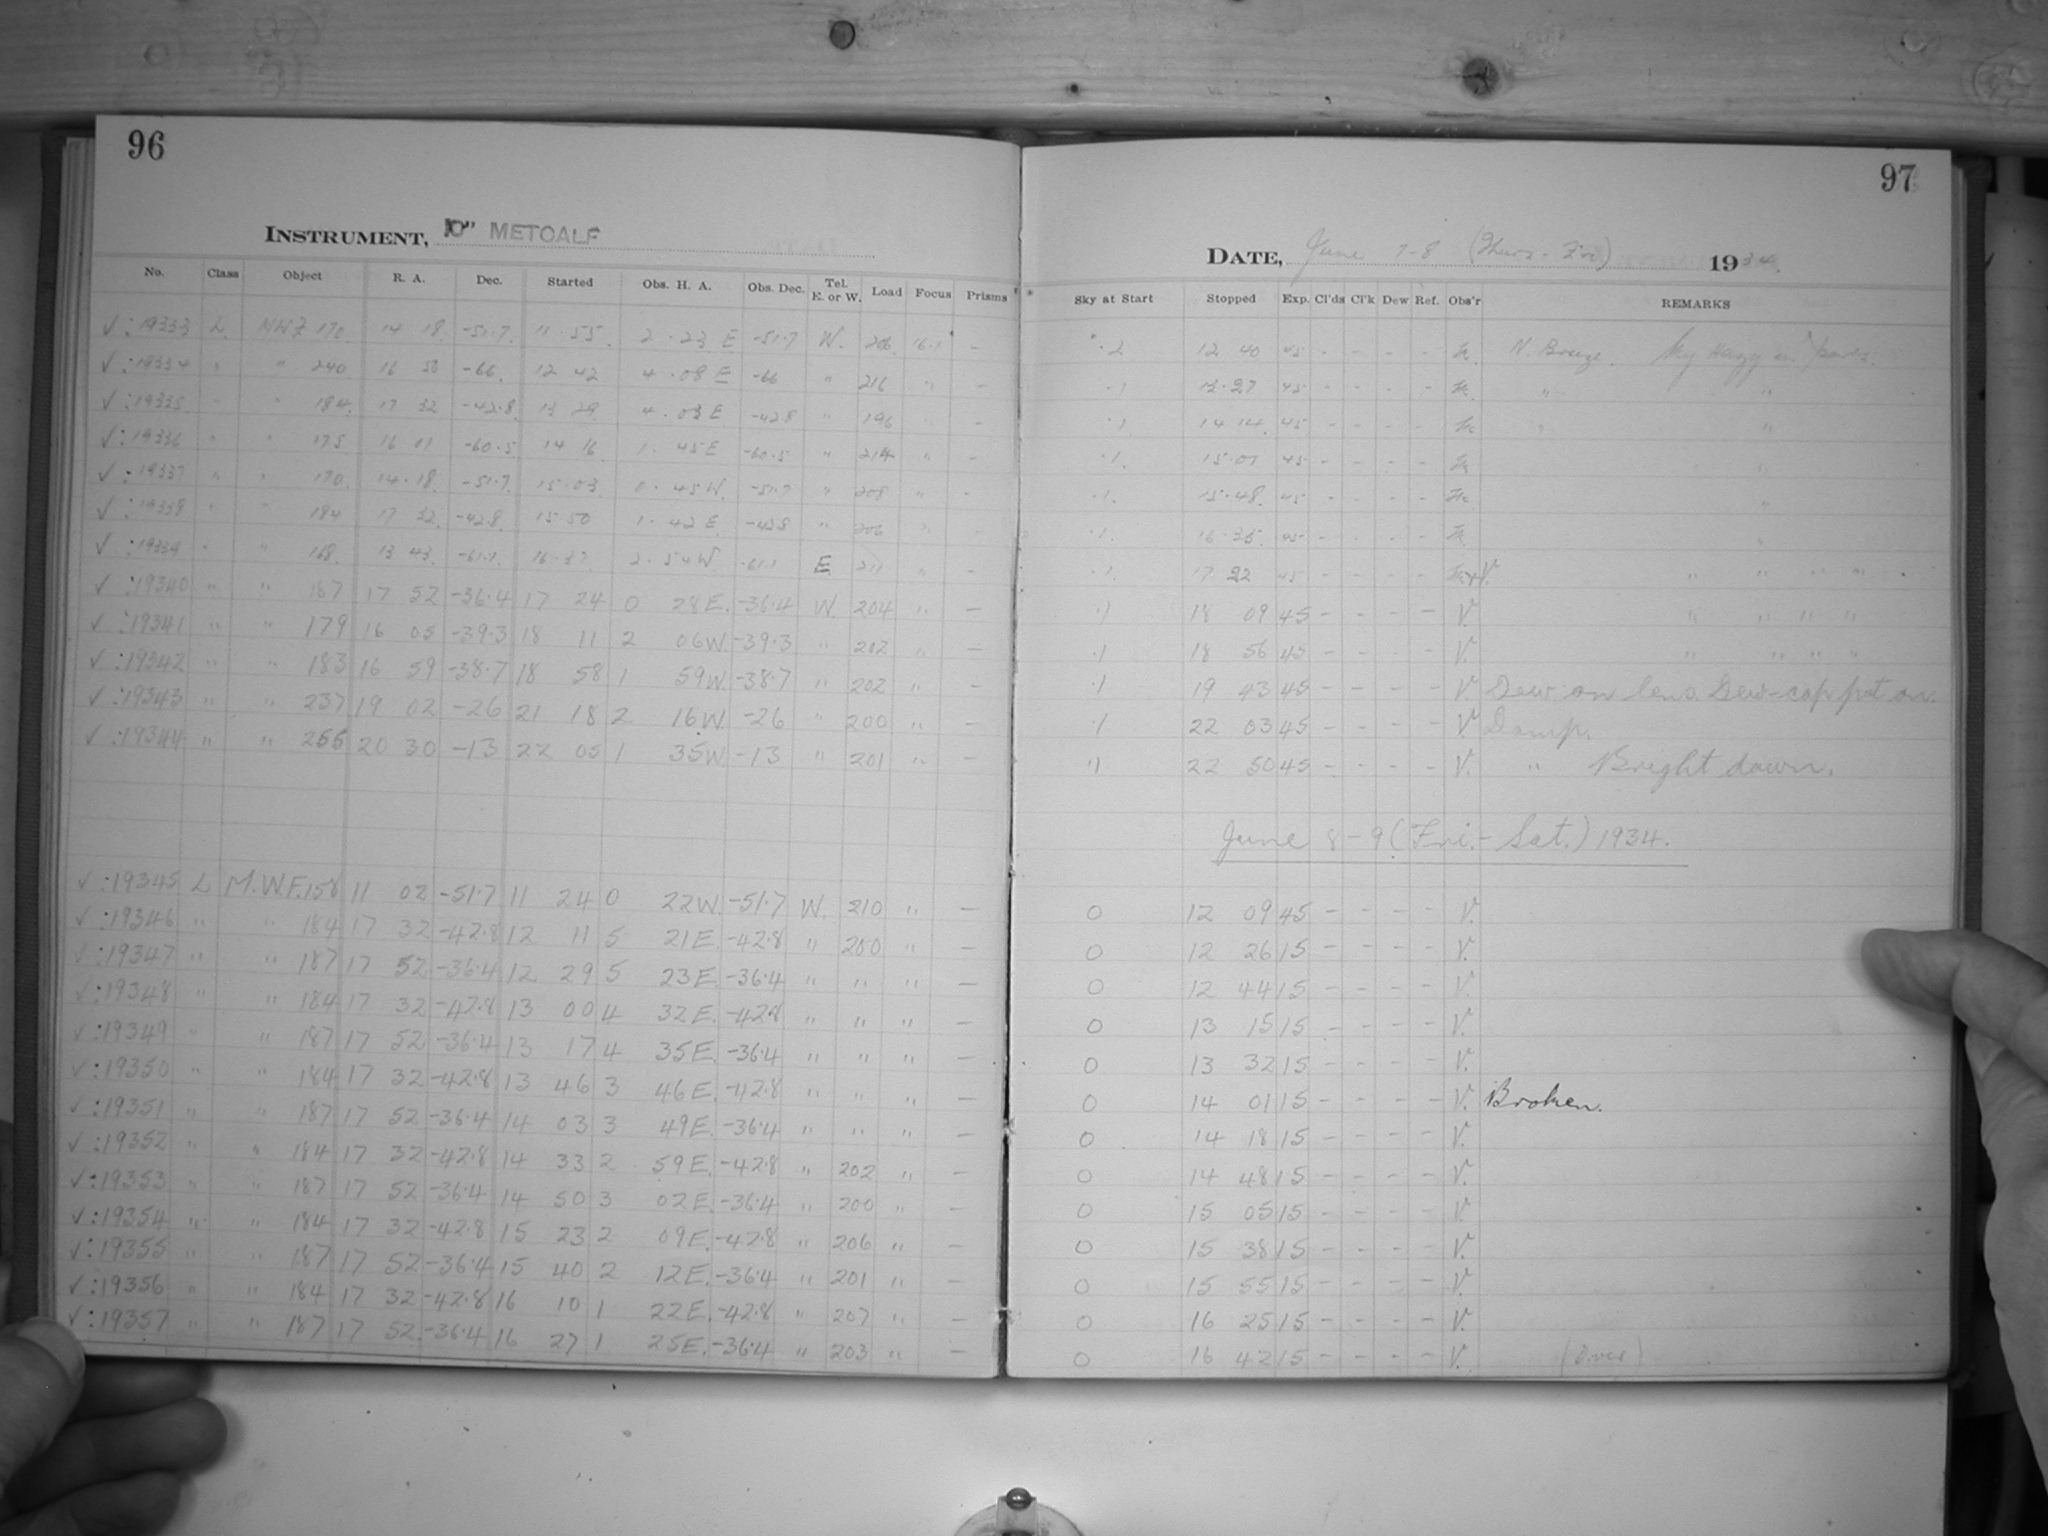 96
INSTRUMENT, 10" METCALF
No. Class Object R. A. Dec. Started Obs. H. A. Obs. Dec. Tel. E. or W. Load Focus Prisms
√:19333 L MWF 170. 14 18. -51.7. 11.55. 2.23 E -51.7 W. 206. 16.1 -
√:19334 " " 240 16 50 -66. 12 42 4.08 E -66 " 216 " -
√:19335 " " 184. 17 32 -42.8. 13 29 4.03 E -42.8 " 196 " -
√:19336 " " 175 16 01 -60.5 14 16 1.45 E -60.5 " 214 " -
√:19337 " " 170. 14.18. -51.7. 15.03 0.45 W. -51.7 " 208 " -
√:19338 " " 184 17 32. -42.8. 15 50 1.42 E -42.8 " 206 " -
√:19339 " " 168. 13 43. -61.1. 16.37 2.54 W. -61.1 E 211 " -
√:19340 " " 187 17 52 -36.4 17 24 0 28 E. -36.4 W. 204 " -
√:19341 " " 179 16 05 -39.3 18 11 2 06 W. -39.3 " 202 " -
√:19342 " " 183 16 59 -38.7 18 58 1 59 W. -38.7 " 202 " -
√:19343 " " 237 19 02 -26 21 18 2 16 W. -26 " 200 " -
√:19344 " " 255 20 30 -13 22 05 1 35 W -13 " 201 " -
√:19345 L M.W.F. 158 11 02 -51.7 11 24 0 22 W. -51.7 W. 210 " -
√:19346 " " 184 17 32 -42.8 12 11 5 21 E. -42.8 " 200 " -
√:19347 " " 187 17 52 -36.4 12 29 5 23 E. -36.4 " " " -
√:19348 " " 184 17 32 -42.8 13 00 4 32 E. -42.8 " " " -
√:19349 " " 187 17 52 -36.4 13 17 4 35 E. -36.4 " " " -
√:19350 " " 184 17 32 -42.8 13 46 3 46 E. -42.8 " " " -
√:19351 " " 187 17 52 -36.4 14 03 3 49 E. -36.4 " " " -
√:19352 " " 184 17 32 -42.8 14 33 2 59 E. -42.8 " 202 " -
√:19353 " " 187 17 52 -36.4 14 50 3 02 E. -36.4 " 200 " -
√:19354 " " 184 17 32 -42.8 15 23 2 09 E. -42.8 " 206 " -
√:19355 " " 187 17 52 -36.4 15 40 2 12 E. -36.4 " 201 " -
√:19356 " " 184 17 32 -42.8 16 10 1 22 E. -42.8 " 207 " -
√:19357 " " 187 17 52 -36.4 16 27 1 25 E. -36.4 " 203 " -
97
DATE, June 7-8 (Thurs - Fri) 1934.
Sky at Start Stopped Exp. Cl'ds Cl'k Dew Ref. Obs'r REMARKS
.2 12 40 45 - - - - N. Breeze. Sky Hazy in parts.
.1 13.27 45 - - - - " "
.1 14 14. 45 - - - - " "
.1. 15.01 45 - - - - "
.1. 15.48. 45 - - - - "
.1. 16.35. 45 - - - - "
.1. 17 22 45 - - - - " " " "
.1 18 09 45 - - - - V. " " " "
.1 18 56 45 - - - - V. " " " "
.1 19 43 45 - - - - V. Dew on lens. Dew-cap put on.
.1 22 03 45 - - - - V Damp.
.1 22 50 45 - - - - V. " Bright dawn.
June 8-9 (Fri.-Sat.) 1934.
0 12 09 45 - - - - V.
0 12 26 15 - - - - V.
0 12 44 15 - - - - V.
0 13 15 15 - - - - V.
0 13 32 15 - - - - V.
0 14 01 15 - - - - V. Broken.
0 14 18 15 - - - - V.
0 14 48 15 - - - - V.
0 15 05 15 - - - - V.
0 15 38 15 - - - - V.
0 15 55 15 - - - - V.
0 16 25 15 - - - - V.
0 16 42 15 - - - - V. (Over)